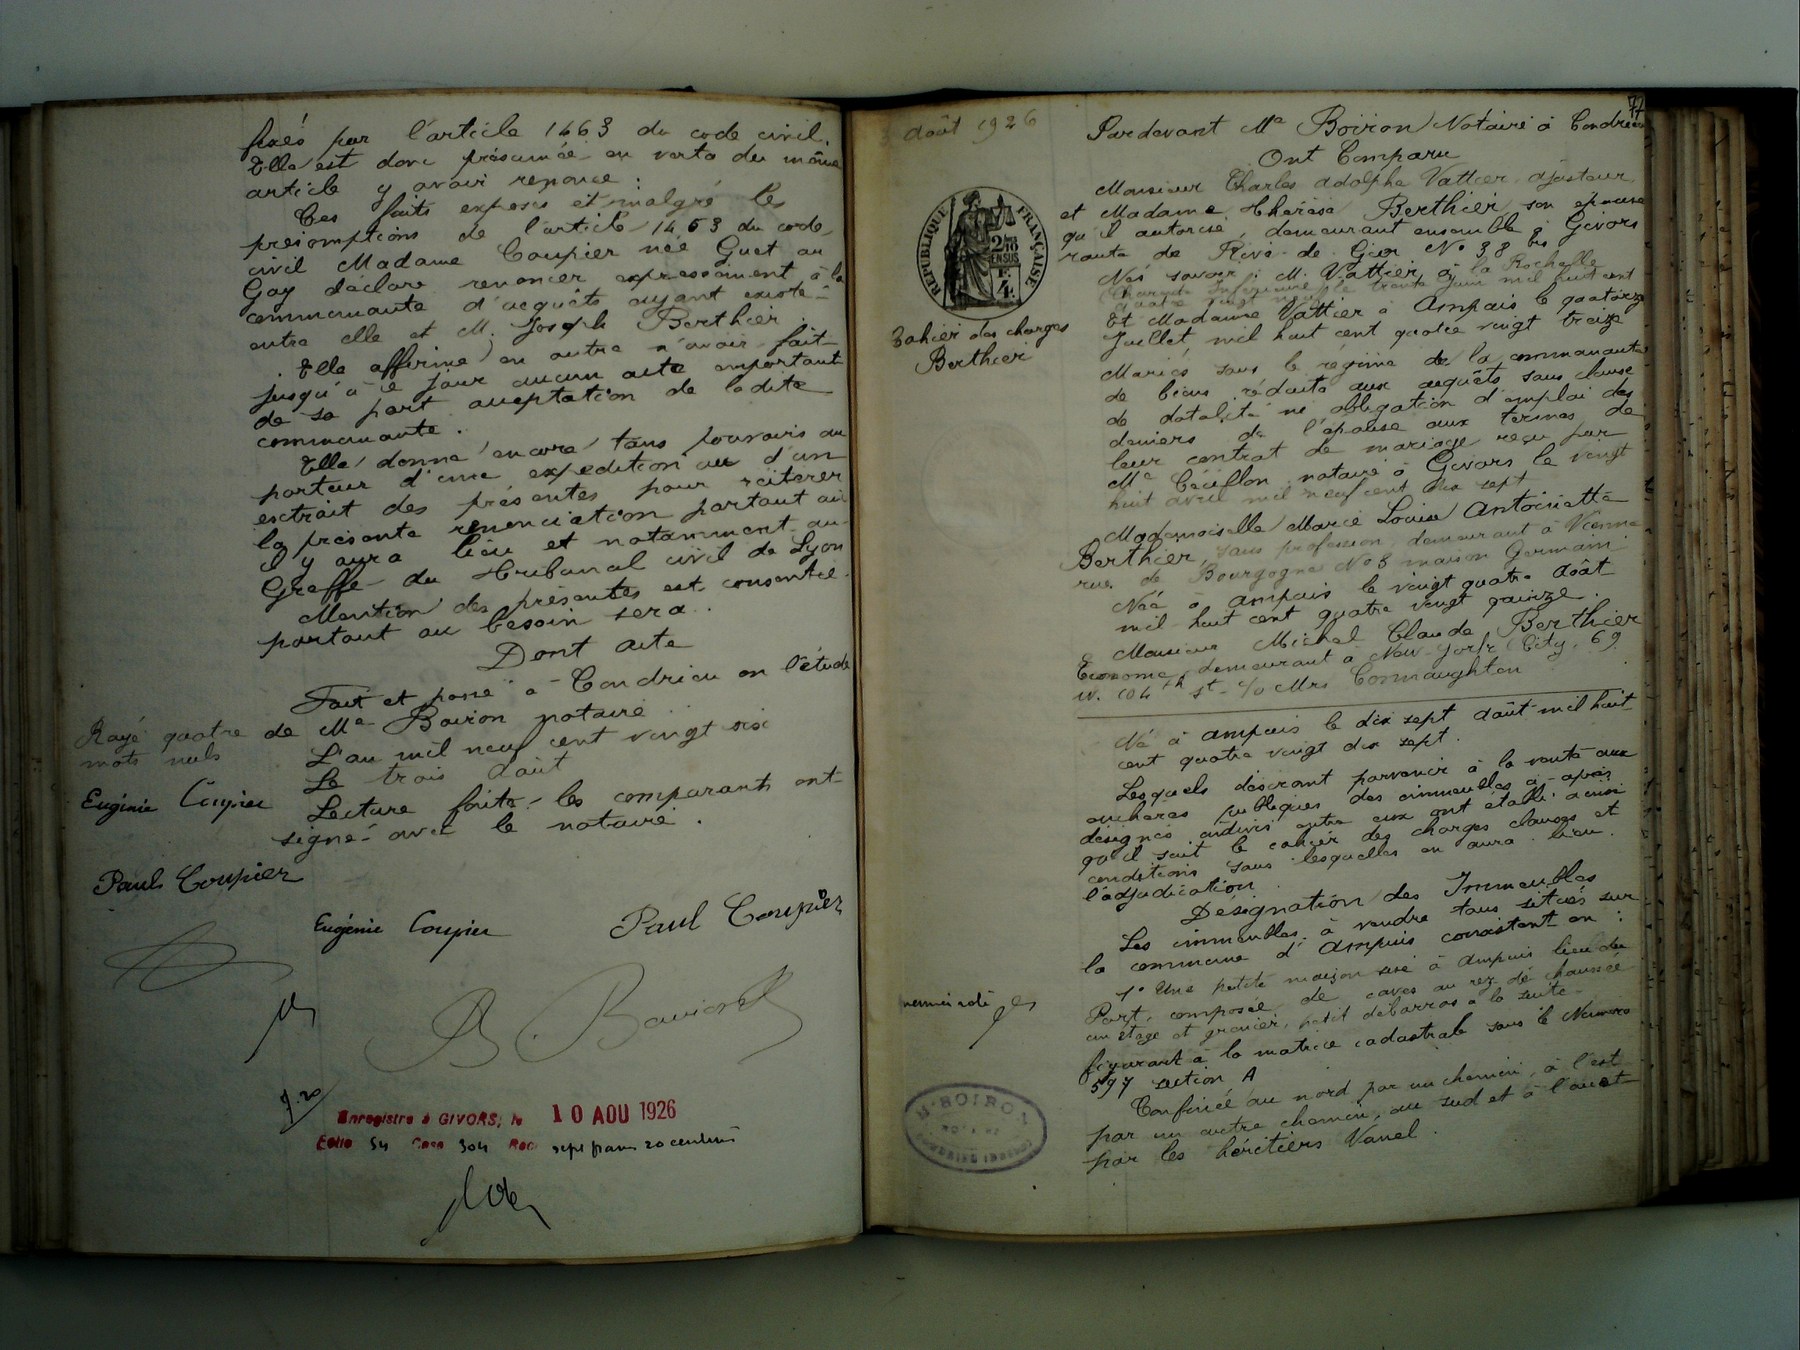 fixés par l'article 1463 du code civil.
Elle est donc présumée en vertu du même
article y avoir renoncé :
Ces faits exposés et malgré les
présomptions de l'article 1463 du code
civil Madame Coupier née Guet ou
Gay déclare renoncer expressément à la
communauté d'acquêts ayant existé
entre elle et M. Joseph Berthier.
Elle affirme en outre n'avoir fait
jusqu'à ce jour aucun acte emportant
de sa part acceptation de ladite
communauté.
Elle donne encore tous pouvoirs au
porteur d'une expédition ou d'un
extrait des présentes pour réitérer
la présente renonciation partout où
il y aura lieu et notamment au
Greffe du Tribunal civil de Lyon
Mention des présentes est consentie
partout où besoin sera.
Dont acte
Fait et passé à Condrieu en l'étude
de Me Boiron notaire
L'an mil neuf cent vingt six
Le trois août
Lecture faite les comparants ont
signé avec le notaire.
Rayé quatre
mots nuls
Eugénie Coupier
Paul Coupier
Eugénie Coupier
Paul Coupier
Enregistré à GIVORS, le 10 AOU 1926
Folio 54 Case 304 Reçu sept francs 20 centimes
77
3 août 1926
RÉPUBLIQUE FRANÇAISE
Cahier des charges
Berthier
Pardevant Me Boiron Notaire à Condrieu
Ont Comparu
Monsieur Charles Adolphe Vattier, ajusteur,
et Madame Thérèse Berthier son épouse
qu'il autorise, demeurant ensemble à Givors
route de Rive de Gier No 38 bis
Nés savoir : M. Vattier, à la Rochelle
(Charente Inférieure) le trente juin mil huit cent
quatre vingt
Et Madame Vattier à Ampuis le quatorze
Juillet mil huit cent quatre vingt treize
Mariés sous le régime de la communauté
de biens réduite aux acquêts sans clause
de dotalité ni obligation d'emploi des
deniers de l'épouse aux termes de
leur contrat de mariage reçu par
Me notaire à Givors le vingt
huit avril mil neuf cent dix sept
Mademoiselle Marie Louise Antoinette
Berthier, sans profession, demeurant à Vienne
rue de Bourgogne No 8 maison Germain
Née à Ampuis le vingt quatre Août
mil huit cent quatre vingt quinze.
Monsieur Michel Claude Berthier
Econome, demeurant à New-York City, 69
W. 104th St - c/o Mrs Connaughton
Né à Ampuis le dix sept août mil huit
cent quatre vingt dix sept.
Lesquels désirant parvenir à la vente aux
enchères publiques des immeubles ci-après
désignés indivis entre eux ont établi ainsi
qu'il suit le cahier des charges clauses et
conditions sous lesquelles en aura lieu
l'adjudication.
Désignation des Immeubles
Les immeubles à vendre tous situés sur
la commune d'Ampuis consistent en :
1° Une petite maison sise à Ampuis lieu du
Port, composée de caves au rez de chaussée
un étage et grenier, petit débarras à la suite
figurant à la matrice cadastrale sous le Numéro
597 section A
Confiné au nord par un chemin, à l'est
par un autre chemin, au sud et à l'ouest
par les héritiers Vanel.
Me BOIRON